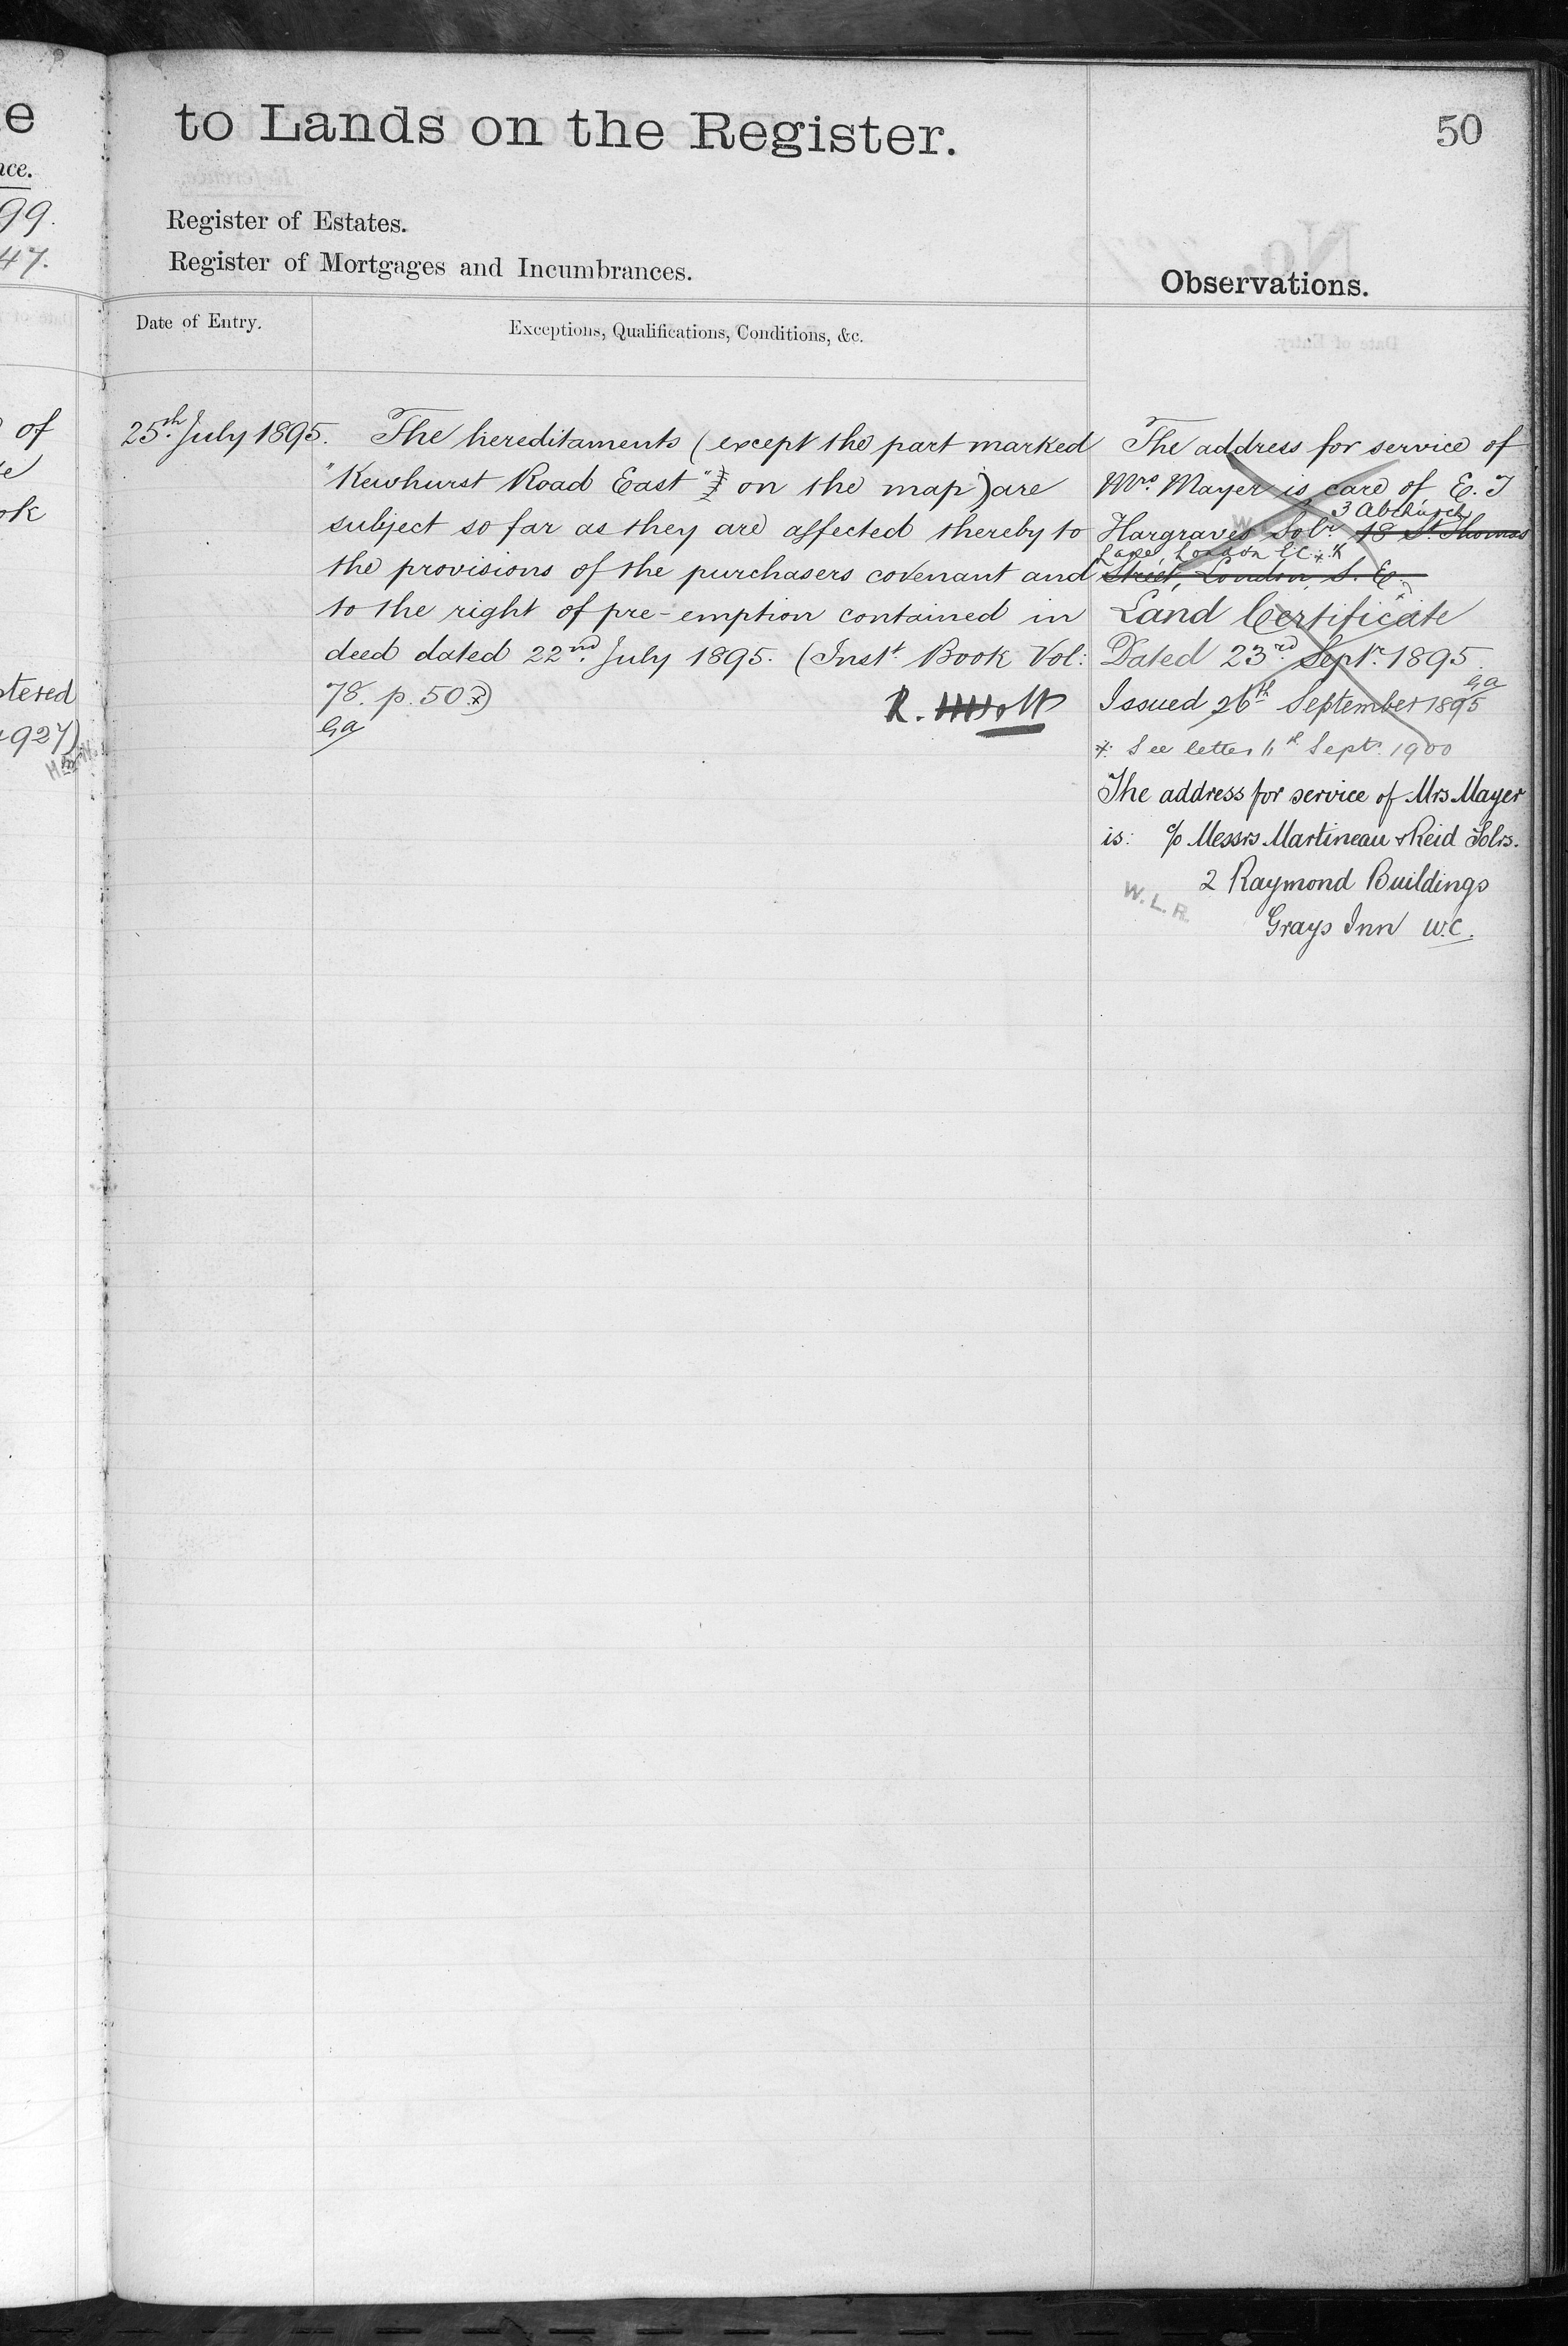 e
nce.
99.
47.
of
ok
stered
927)
to Lands on the Register.
50
Register of Estates.
Register of Mortgages and Incumbrances.
Observations.
Date of Entry.
Exceptions, Qualifications, Conditions, &c.
25th July 1895.
The hereditaments (except the part marked
"Kewhurst Road East" on the map) are
subject so far as they are affected thereby to
the provisions of the purchasers covenant and
to the right of pre-emption contained in
deed dated 22nd July 1895. (Inst. Book Vol:
78. p. 50.)
Ga
R.
The address for service of
Mrs. Mayer is care of E. J
3 Abchurch
Hargraves Solr. 18 St. Thomas
Lane, London E.C. * K
Street, London, S. E.
Land Certificate
Dated 23rd Septr. 1895.
Ga
Issued 26th September 1895
* See letter 11th Sept. 1900
The address for service of Mrs Mayer
is: c/o Messrs Martineau & Reid Solrs.
2 Raymond Buildings
W.L.R.
Grays Inn W.C.